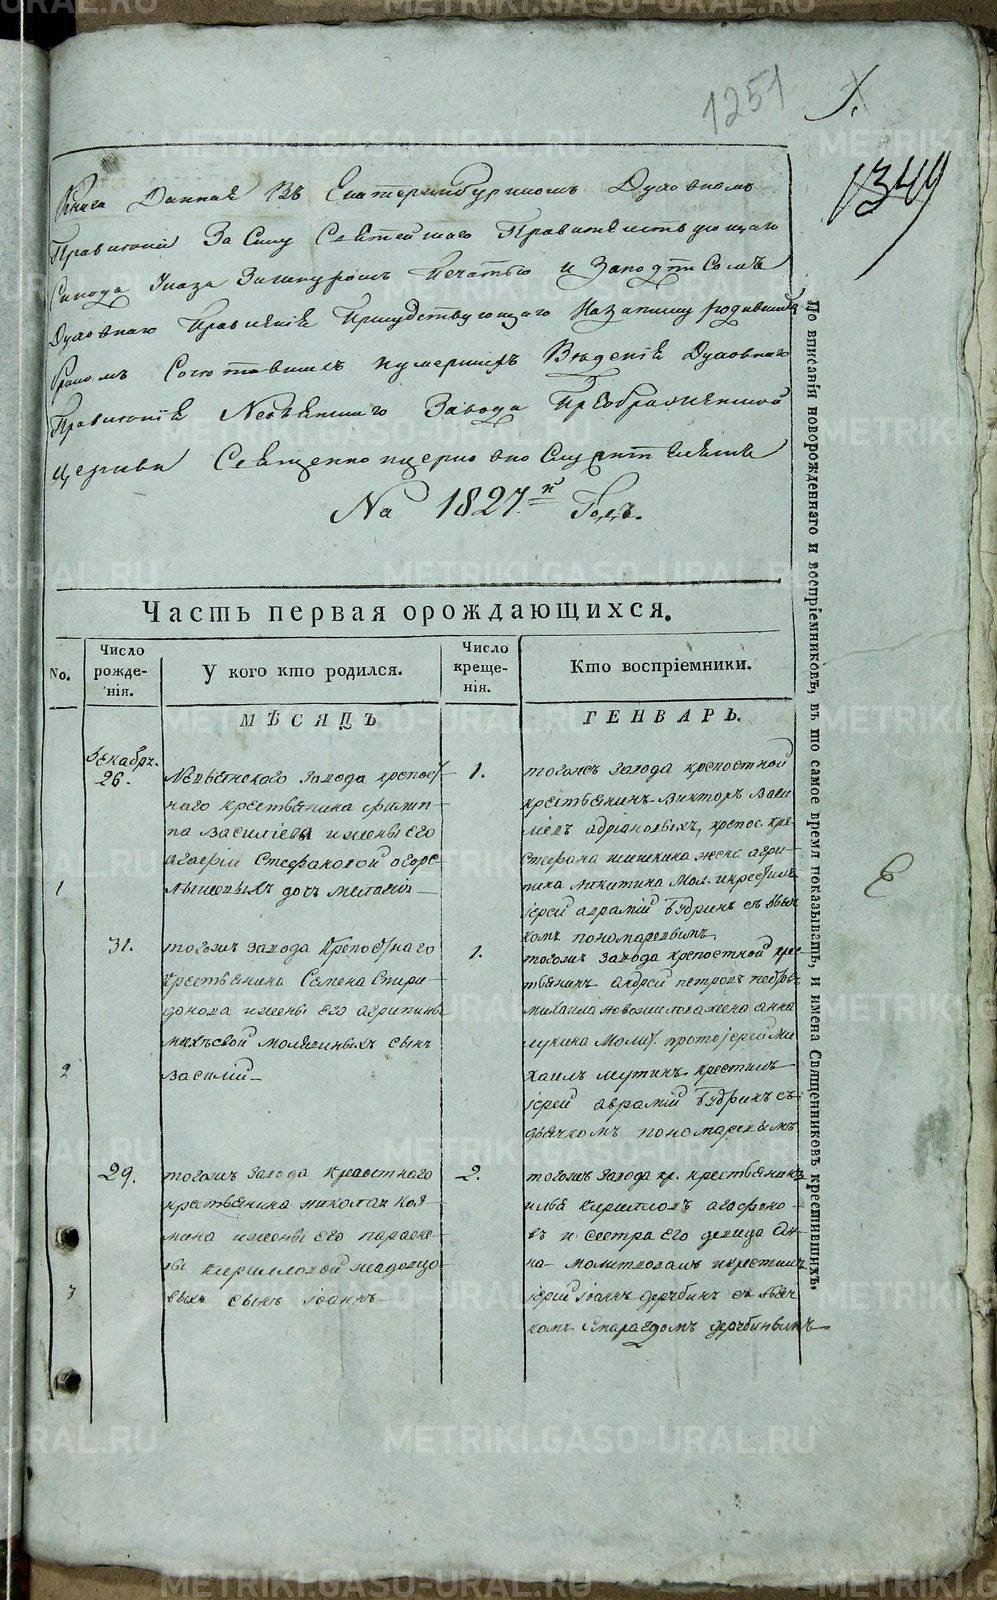 1251
1349
Книга Данная Въ Екатеринбургскомъ Духовномъ
Правлении За Силу Святейшаго Правительствующаго
Синода Указа Зашнуромъ Печатью и Заподписомъ
Духовнаго Правления Присудствующаго Назапись родившихся
бракомъ Сочетавшихъ иумершихъ Введение Духовнаго
Правления Невьянскаго Завода Преображенской
Церкви Священно ицерковно Служителямъ
На 1827й Годъ.
Часть первая орождающихся.
No.
Число рожденія.
У кого кто родился.
Число крещенія.
Кто воспріемники.
МѢСЯЦЪ
ГЕНВАРЬ.
1
Декабрь.
26.
Невьянского завода крепост-
наго крестьянина филип-
па Василиева ижены его
агафии Стефановой огоре-
лышевыхъ дочь мелания
1.
тогожъ завода крепостной
крестьянинъ викторъ васи
лиевъ адриановыхъ, крепос. кре-
стефана шишкина жена агри-
пина никитина мол. икрестилъ
іерей аврамий Будринъ съ дьяч
комъ пономаревымъ
2
31.
тогожъ завода Крепостнаго
крестьянина Семена Спири-
донова ижены его агрипины
сынъ
василий
1.
тогожъ завода крепостной крес-
тьянинъ андрей петровъ
михаила новожилова жена анна
лукина Молит. протоіерей Ми
хаилъ крестилъ
іерей аврамий Будринъ съ
дьячкомъ пономаревымъ
3
29.
тогожъ завода крепостнаго
крестьянина николая коз
мина ижены его параске-
вы кирилловой
выхъ сынъ іоаннъ
2.
тогожъ завода кр. крестьянинъ
илья кирилловъ агафоно-
въ и сестра его девица Ан-
на молитвовалъ икрестилъ
іерей іоаннъ дерябинъ съ дьяч
комъ Смарагдомъ дерябинымъ
По вписаніи новорожденнаго и воспріемниковъ, въ то самое время показывать, и имена Священниковъ крестившихъ.
METRIKI.GASO-URAL.RU